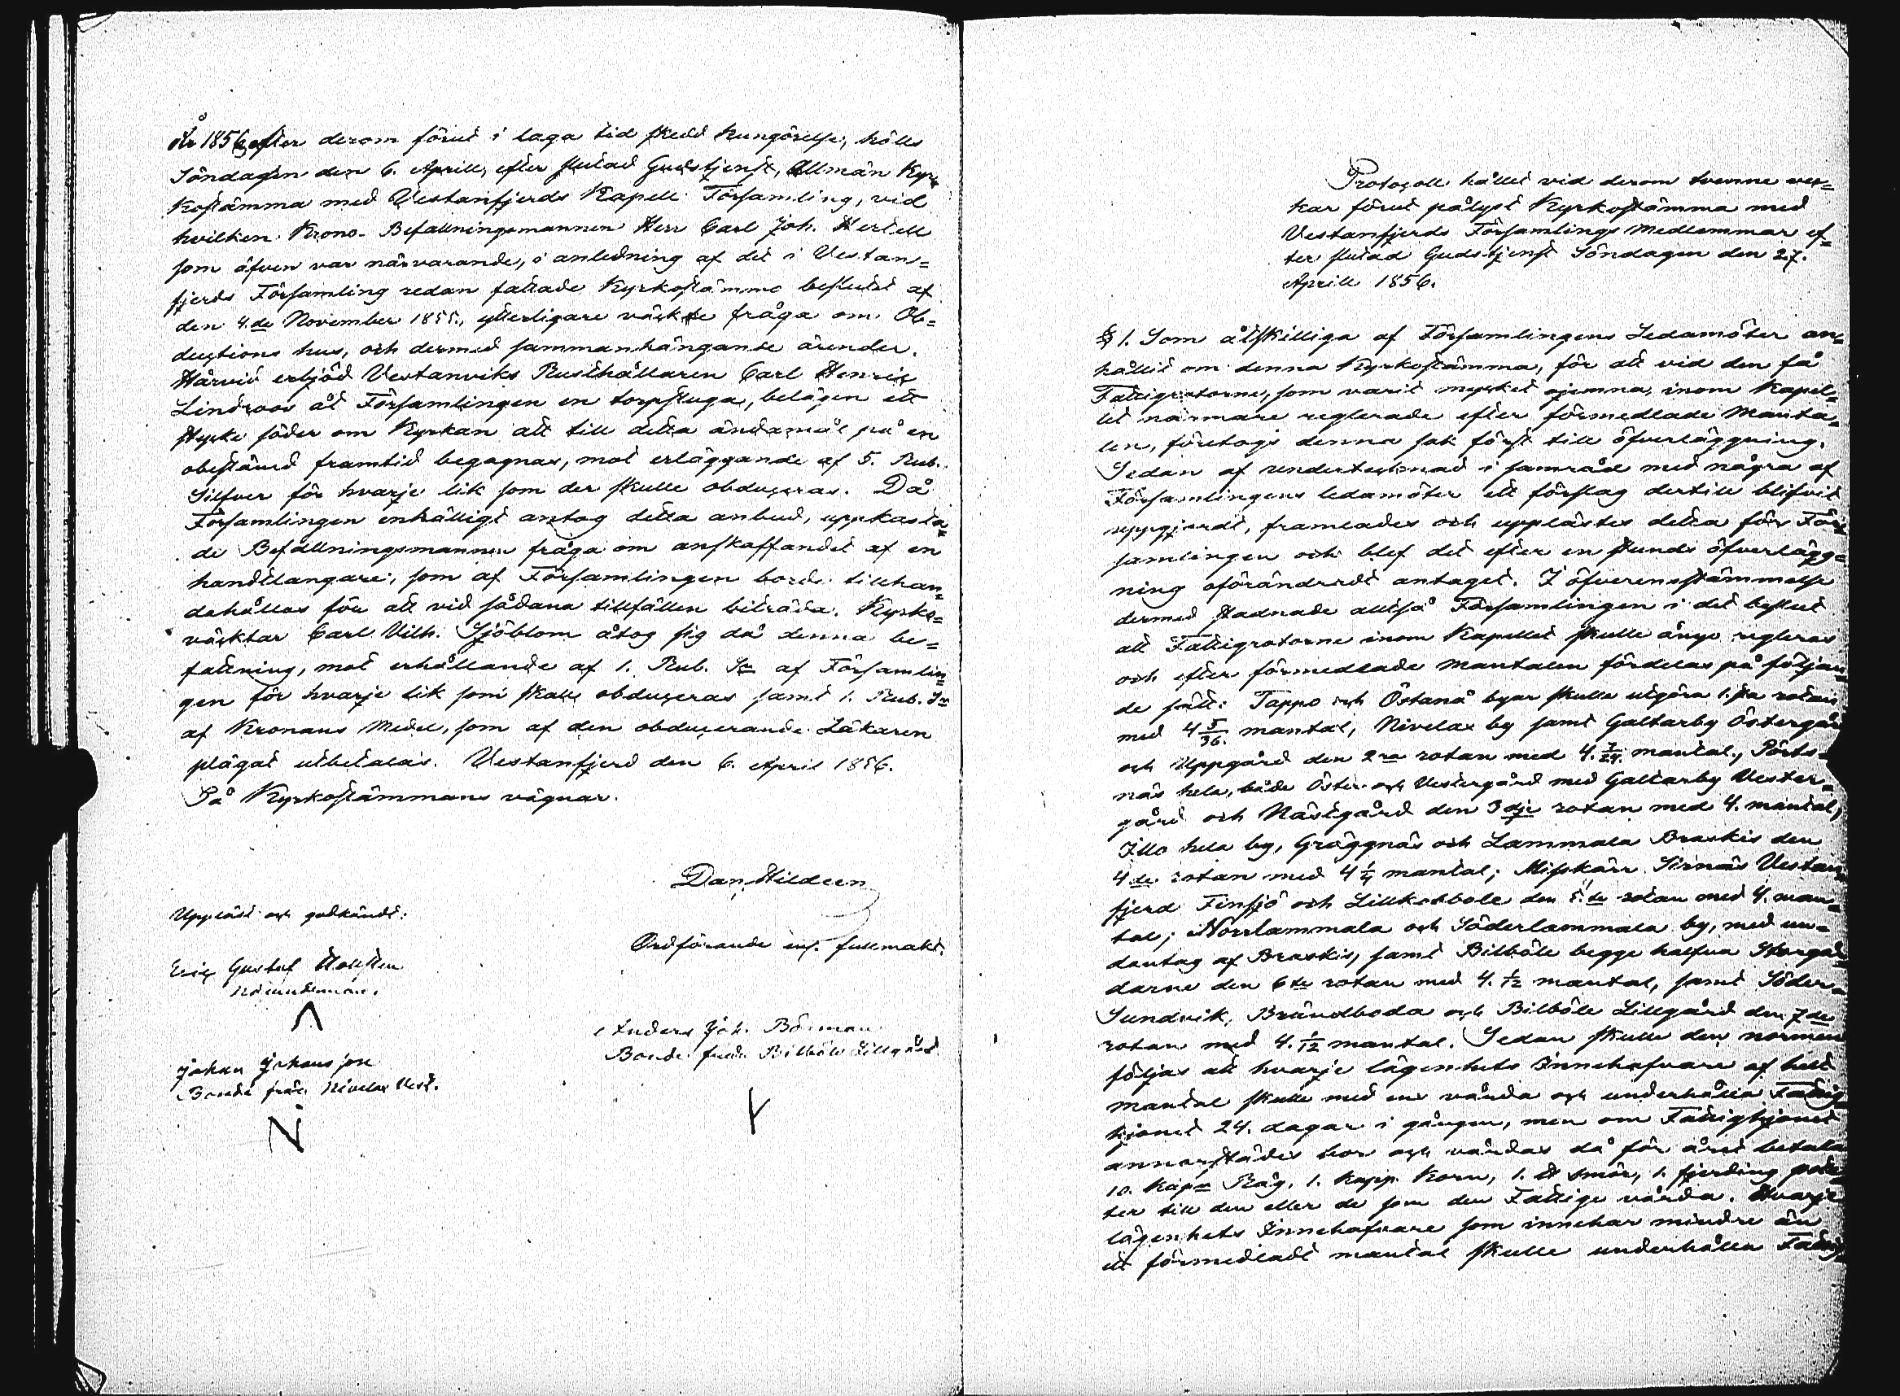 År 1856, efter derom förut i laga tid skedd kungörelse, hölls
Söndagen den 6. Aprill, efter slutad Gudstjenst, Allmän Kyr=
kostämma med Vestanfjerds Kapell Församling, vid
hvilken Krono-Befallningsmannen Herr Carl Joh. Hertell
som äfven var närvarande, i anledning af det i Vestan=
fjerds Församling redan fattade Kyrkostämmo beslutet af
den 4.de November 1855, ytterligare väckte fråga om Ob=
ductions hus, och dermed sammanhängande ärender.
Härvid erbjöd Vestanviks Rusthållaren Carl Henric
Lindroos åt Församlingen en torpstuga, belägen ett
stycke söder om Kyrkan att till detta ändamål på en
obestämd framtid begagnas, mot erläggande af 5. Rub.
Silfver för hvarje lik som der skulle obduceras. Då
Församlingen enhälligt antog detta anbud, uppkasta=
de Befallningsmannen fråga om anskaffandet af en
handtlangare, som af Församlingen borde tillhan=
dahållas för att vid sådana tillfällen biträda. Kyrko=
väktar Carl Vilh. Sjöblom åtog sig då denna be=
fattning, mot erhållande af 1. Rub. Sr af Församlin=
gen för hvarje lik som skall obduceras samt 1. Rub. Sr
af Kronans medel, som af den obducerande Läkaren
plägat utbetalas. Vestanfjerd den 6. April 1856.
På Kyrkostämmans vägnar.
Dan. Hildeen
Ordförande enl. fullmakt.
Uppläst och godkändt:
Eric Gustaf
Nämndeman.
Anders Joh. Böiman
Bonde från Bilböle Lillgård
Johan Johansson
Bonde från Nivelax Vest.
Protocoll hållet vid derom tvenne vec=
kor förut pålyst Kyrkostämma med
Vestanfjerds Församlings medlemmar ef=
ter slutad Gudstjenst Söndagen den 27.
Aprill 1856.
§ 1. Som åtskilliga af Församlingens Ledamöter an=
hållit om denna Kyrkostämma, för att vid den få
Fattigrotorne, som varit mycket ojemna, inom Kapel=
let närmare reglerade efter förmedlade manta=
len, företogs denna sak först till öfverläggning.
Sedan af undertecknad i samråd med några af
Församlingens ledamöter ett förslag dertill blifvit
uppgjordt, framlades och upplästes detta för För=
samlingen och blef det efter en stunds öfverlägg=
ning oförändradt antaget. I öfverensstämmelse
dermed stadnade alltså Församlingen i det beslut
att Fattigrotorne inom Kapellet skulle ånyo regleras
och efter förmedlade mantalen fördelas på följan=
de sätt: Tappo och Östanå byar skulle utgöra 1.sta rotan
med 4 5/36. mantal, Nivelax by samt Galtarby Östergård
och Uppgård den 2ra rotan med 4. 7/24. mantal, Pörts=
näs hela, både Öster- och Vestergård med Galtarby Vester=
gård och Nästgård den 3dje rotan med 4. mantal,
Illo hela by, Gräggnäs och Lammala Braskis den
4.de rotan med 4 1/4 mantal; Misskärr Sirnäs Vestan=
fjerd Finsjö och Lillkobbole den 5.te rotan med 4. man=
tal; Norrlammala och Söderlammala by, med un=
dantag af Braskis, samt Bilböle begge halfva Storgår=
darne den 6te rotan med 4. 1/12 mantal, samt Söder=
Sundvik, Brändboda och Bilböle Lillgård den 7de
rotan med 4. 1/12 mantal. Sedan skulle den normen
följas att hvarje lägenhets Innehafvare af helt
mantal skulle med en vårda och underhålla Fattig=
hjonet 24. dagar i gången, men om Fattighjonet
annorstädes bor och vårdas då för året betala
10. kapr Råg, 1. kapp. Korn, 1. ℔ smör, 1. fjerding potä=
ter till den eller de som den Fattige vårda. Hvarje
lägenhets Innehafvare som innehar mindre än
ett förmedladt mantal skulle underhålla Fattig=